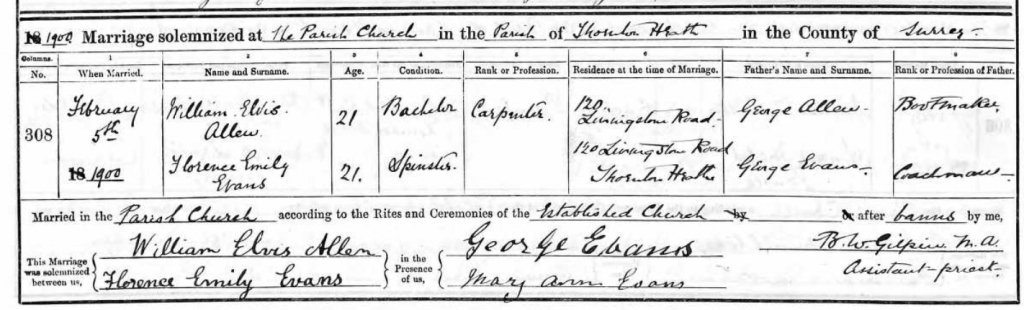 1900 Marriage solemnized at The Parish Church in the Parish of Thornton Heath in the County of Surrey
Columns. 1 2 3 4 5 6 7 8
No. When Married. Name and Surname. Age. Condition. Rank or Profession. Residence at the time of Marriage. Father's Name and Surname. Rank or Profession of Father.
308 February 5th 1900
William Elvis Allen 21 Bachelor Carpenter. 120 Livingston Road George Allen Bootmaker
Florence Emily Evans 21. Spinster. 120 Livingston Road Thornton Heath George Evans Coachman
Married in the Parish Church according to the Rites and Ceremonies of the Established Church by or after banns by me,
This Marriage was solemnized between us, William Elvis Allen in the Presence of us, George Evans B. W. Gilpin M.A.
Florence Emily Evans Mary Ann Evans Assistant-priest.